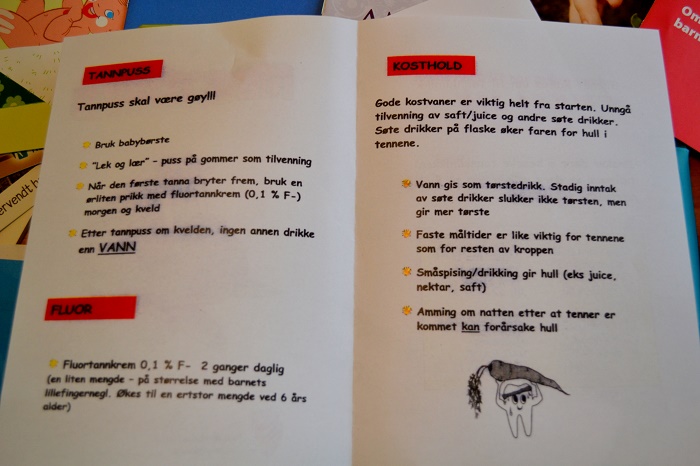 TANNPUSS
Tannpuss skal være gøy!!!
Bruk babybørste
"Lek og lær" - puss på gommer som tilvenning
Når den første tanna bryter frem, bruk en
ørliten prikk med fluortannkrem (0,1 % F-)
morgen og kveld
Etter tannpuss om kvelden, ingen annen drikke
enn VANN
FLUOR
Fluortannkrem 0,1 % F- 2 ganger daglig
(en liten mengde - på størrelse med barnets
lillefingernegl. Økes til en ertstor mengde ved 6 års
alder)
KOSTHOLD
Gode kostvaner er viktig helt fra starten. Unngå
tilvenning av saft/juice og andre søte drikker.
Søte drikker på flaske øker faren for hull i
tennene.
Vann gis som tørstedrikk. Stadig inntak
av søte drikker slukker ikke tørsten, men
gir mer tørste
Faste måltider er like viktig for tennene
som for resten av kroppen
Småspising/drikking gir hull (eks juice,
nektar, saft)
Amming om natten etter at tenner er
kommet kan forårsake hull
Om
barn